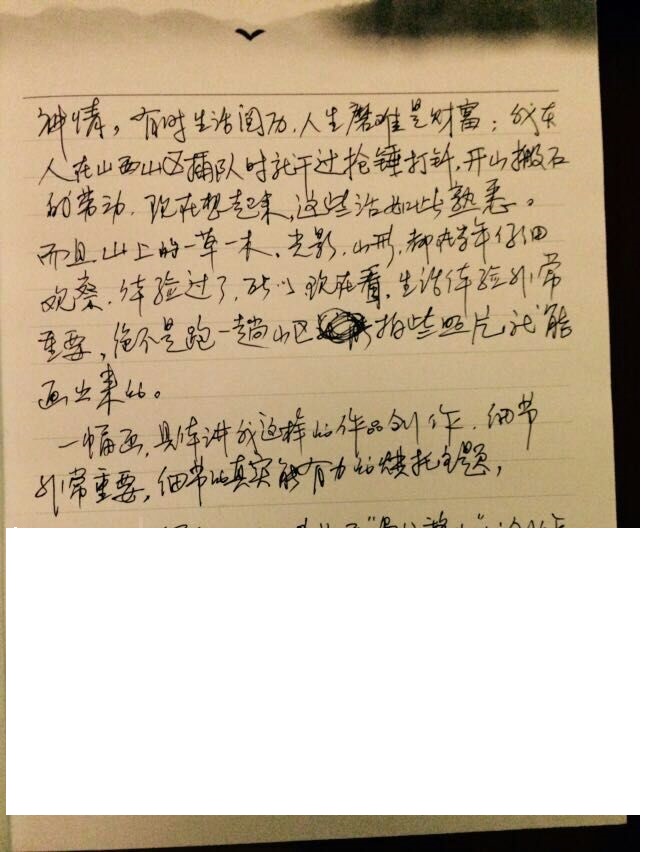 神情。有时生活阅历,人生磨难是财富;我本
人在山西山区插队时就干过抡锤打钎,开山搬石
的劳动,现在想起来,这些活如此熟悉。
而且山上的一草一木、光影、山形,都当年仔细
观察,体验过了,所以现在看,生活体验非常
重要,绝不是跑一趟山区拍些照片就能
画出来的。
一幅画,具体讲我这样的作品创作,细节
非常重要,细节的真实能有力的烘托主题,